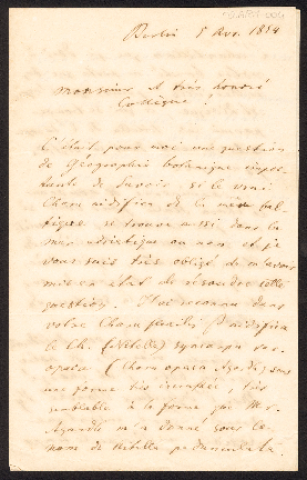 Berlin 5 Avr. 1854
Monsieur et très honoré
Collègue!
C'était pour moi une question
de Géographie botanique impor-
tante de savoir si le vrai
Chara nidifica de la mer bal-
tique se trouve aussi dans la
mer adriatique ou non et je
vous suis très obligé de m'avoir
mis en état de résoudre cette
question. J'ai reconnu dans
votre Chara β nidifica
le Ch. (Nitella)
(Chara Agardh) sous
une forme très, très
semblable à la forme que Mr.
Agardh m'a donné sous le
nom de Nitella pedunculata.